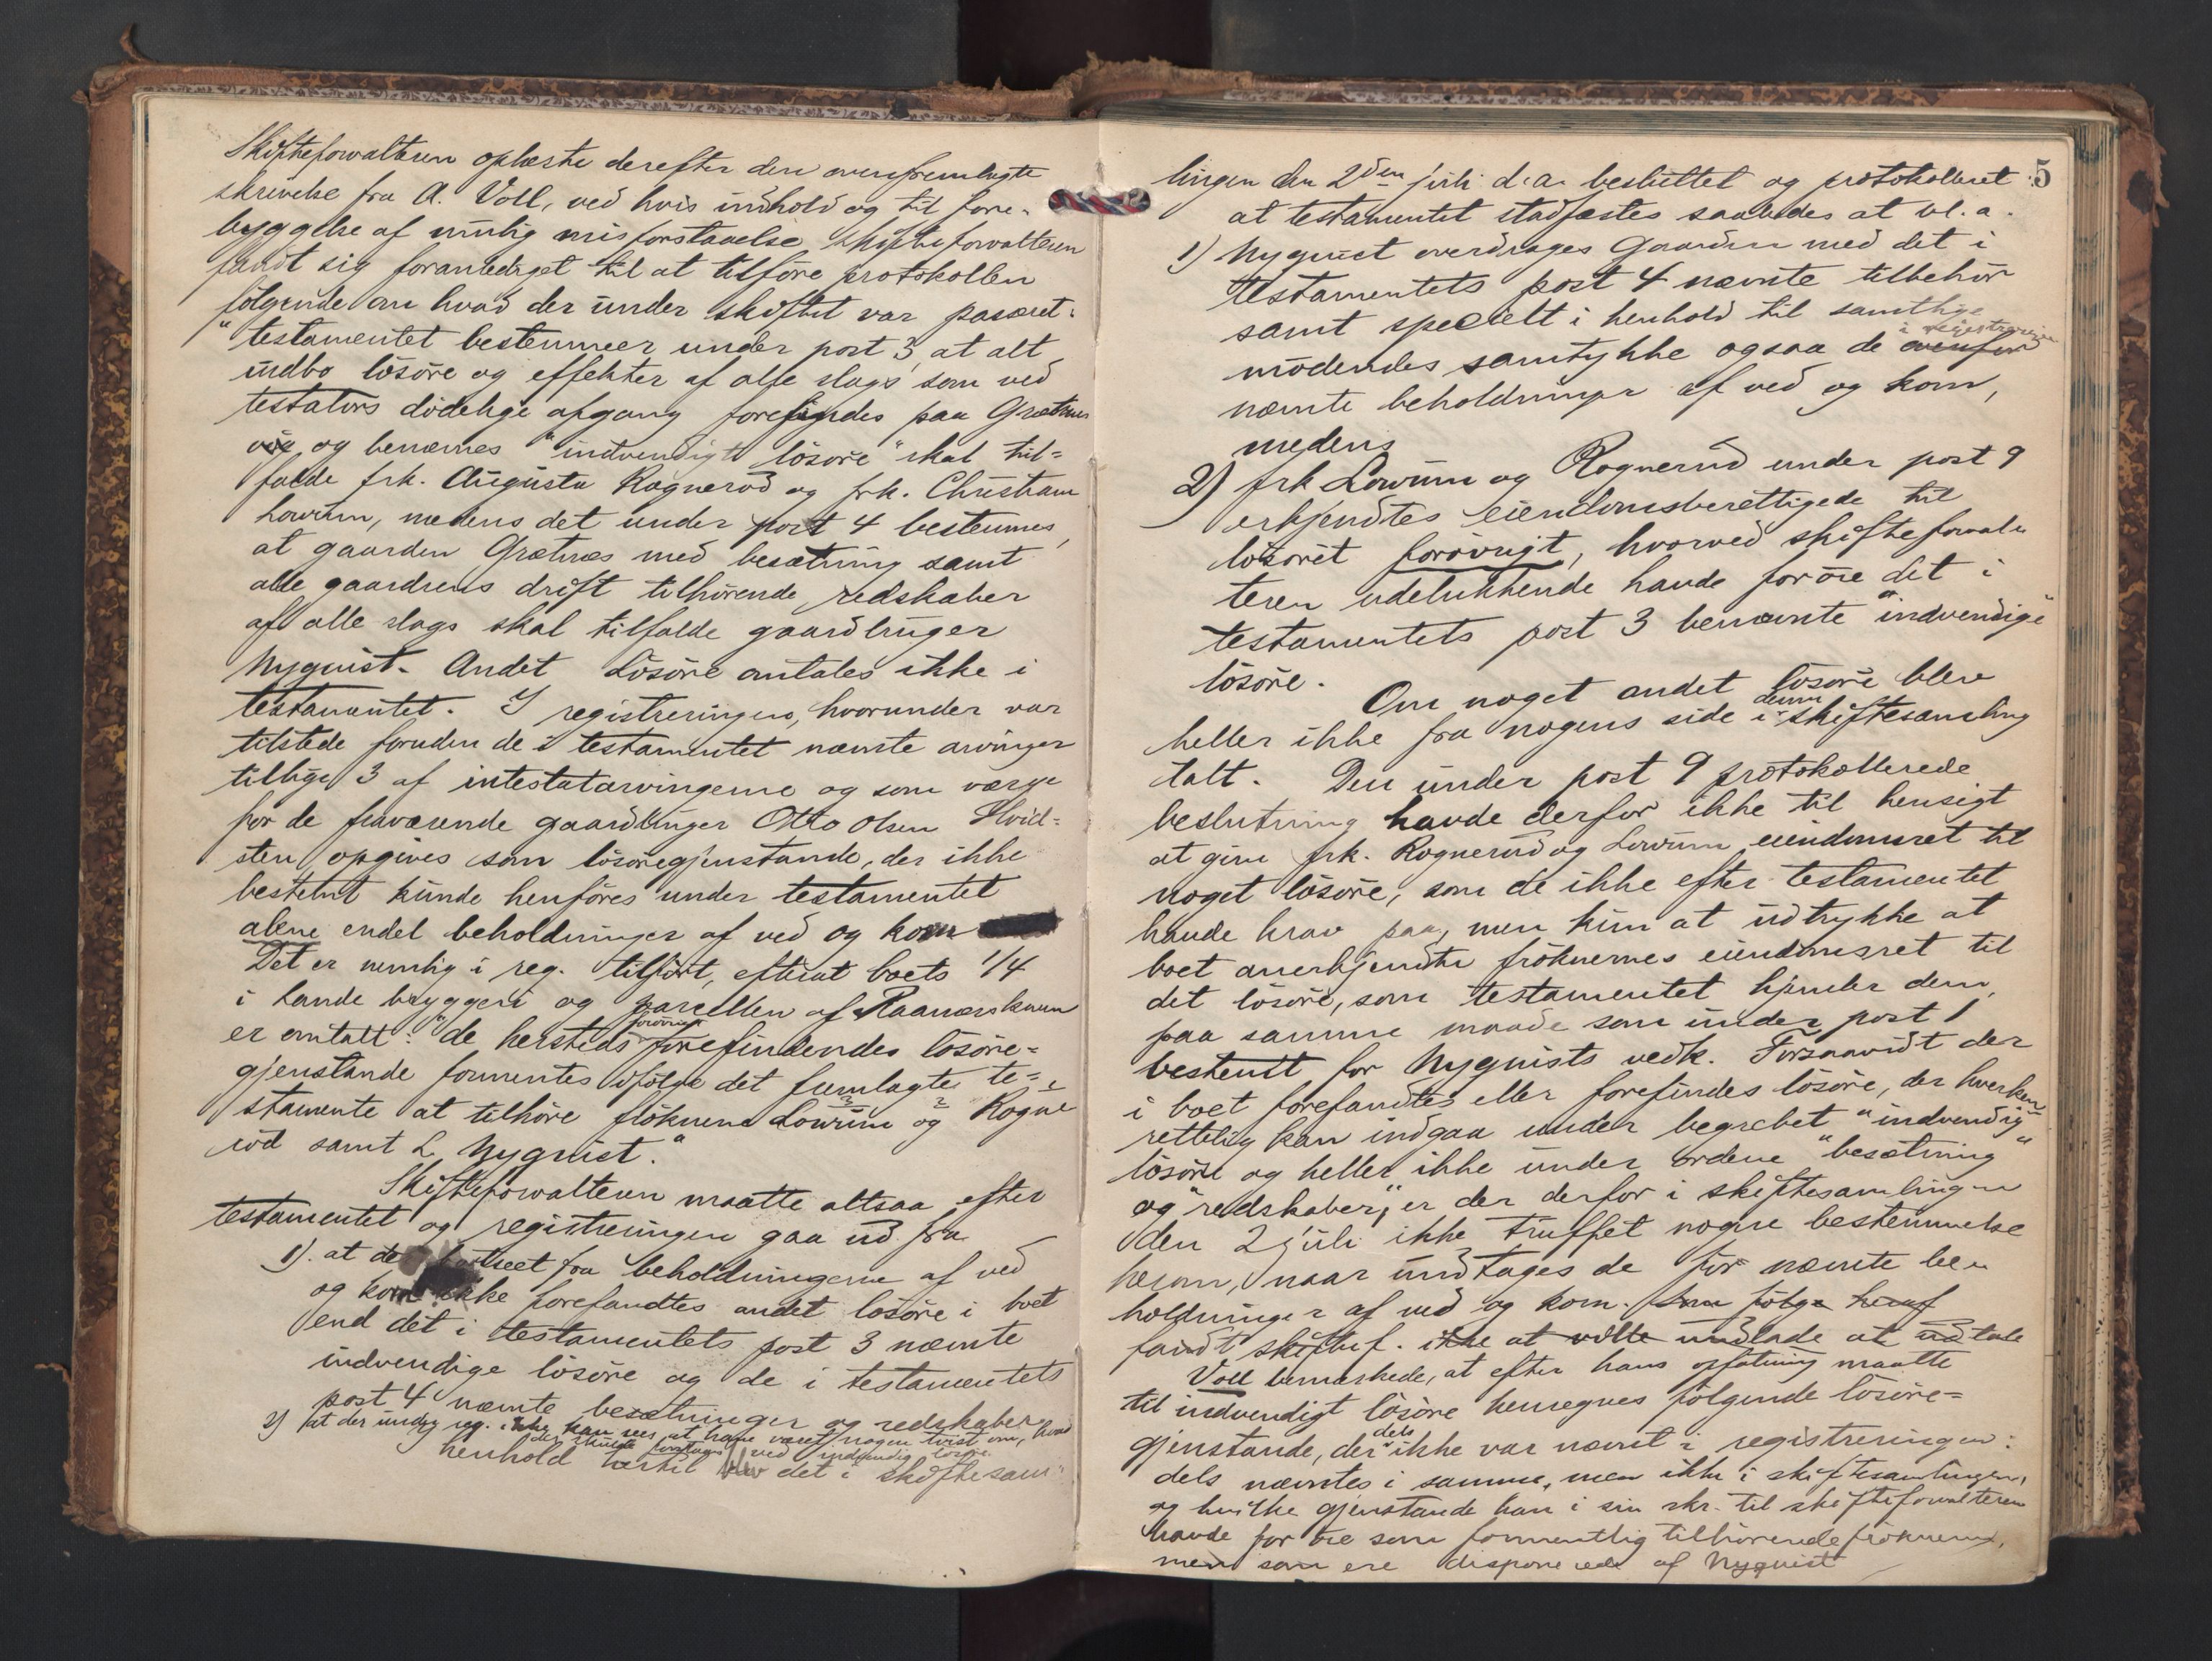 Skifteforvalteren oplæste derefter den ovenfremlagte
skrivelse fra A. Voll, ved hvis indhold og til fore-
byggelse af mulig misforstaaelse skifteforvalteren
fandt sig foranlediget til at tilføre protokollen
følgende om hvad der under skiftet var passeret:
"testamentet bestemmer under post 3, at alt
indbo løsøre og effekter af alle slags som ved
testators dødelige afgang forefindes paa Grætnes
og benævnes "indvendigt løsøre" skal til-
falde frk. Augusta Rognerød og frk. Christiane
Lowum, medens det under post 4 bestemmes,
at gaarden Grætnes med besætning samt
alle gaardens drift tilhørende redskaber
af alle slags skal tilfalde gaardbruger
Nyquist. Andet løsøre omtales ikke i
testamentet. I registreringen, hvorunder var
tilstede foruden de i testamentet nævnte arvinger
tillige 3 af intestatarvingerne og som værge
for de fraværende gaardbruger Otto Olsen Hvid-
sten, opgives som løsøregjenstande, der ikke
bestemt kunde henføres under testamentet
alene endel beholdninger af ved og korn
Det er nemlig i reg. tilført, efterat boets 1/4
i Lande bryggeri og parcellen af Raanæskauen
er omtalt: "de hersteds forøvrigt forefindendes løsøre-
gjenstande formentes ifølge det fremlagte te-
stamente at tilhøre frøknene Lowum og Rogne
rød samt L. Nyquist."
Skifteforvalteren maatte altsaa efter
testamentet og registreringen gaa ud fra
1). at der bortseet fra beholdningerne af ved
og korn ikke forefandtes andet løsøre i boet
end det i testamentets post 3 nævnte
indvendige løsøre og de i testamentets
post 4 nævnte besætninger og redskaber
2) at der under reg. ikke kan sees at have været nogen tvist om, hvad
der skulde forstaaes ved indvendig løsøre.
henhold hertil blev det i skiftesam-
5
lingen den 2den juli d.a. besluttet og protokolleret
at testamentet stadfæstes saaledes at bl.a.
1) Nyquist overdrages Gaarden med det i
testamentets post 4 nævnte tilbehør
samt specielt i henhold til samtlige
mødendes samtykke ogsaa de ovenfor i registreringen
nævnte beholdninger af ved og korn,
medens
2) frk Lowum og Rognerud under post 9
erkjendtes eiendomsberettigede til
løsøret forøvrigt, hvorved skifteforval-
teren udelukkende havde for øie det i
testamentets post 3 benævnte "indvendige"
løsøre.
Om noget andet løsøre blev
heller ikke fra nogens side i denne skiftesamling
talt. Den under post 9 protokollerede
beslutning havde derfor ikke til hensigt
at give frk. Rognerud og Lowum eiendomsret til
noget løsøre, som de ikke efter testamentet
havde krav paa, men kun at udtrykke at
boet anerkjendte frøknernes eiendomsret til
det løsøre, som testamentet hjemler dem,
paa samme maade som under post 1
bestemt for Nyquists vedk. Forsaavidt der
i boet forefandtes eller forefindes løsøre, der hverken
rettelig kan indgaa under begrebet "indvendig"
løsøre og heller ikke under ordene "besætning"
og "redskaber," er der derfor i skiftesamlingen
den 2 juli ikke truffet nogen bestemmelse
herom, naar undtages de før nævnte be-
holdninger af ved og korn. Som følge heraf
fandt skiftef. ikke at ville undlade at udtale
Voll bemærkede, at efter hans opfatning maatte
til indvendigt løsøre henregnes følgende løsøre-
gjenstande, der dels ikke var nævnt i registreringen:
dels nævntes i samme, men ikke i skiftesamlingen,
og hvilke gjenstande han i sin skr. til skifteforvalteren
havde for øie som formentlig tilhørende frøknene,
men som ere disponerede af Nyquist